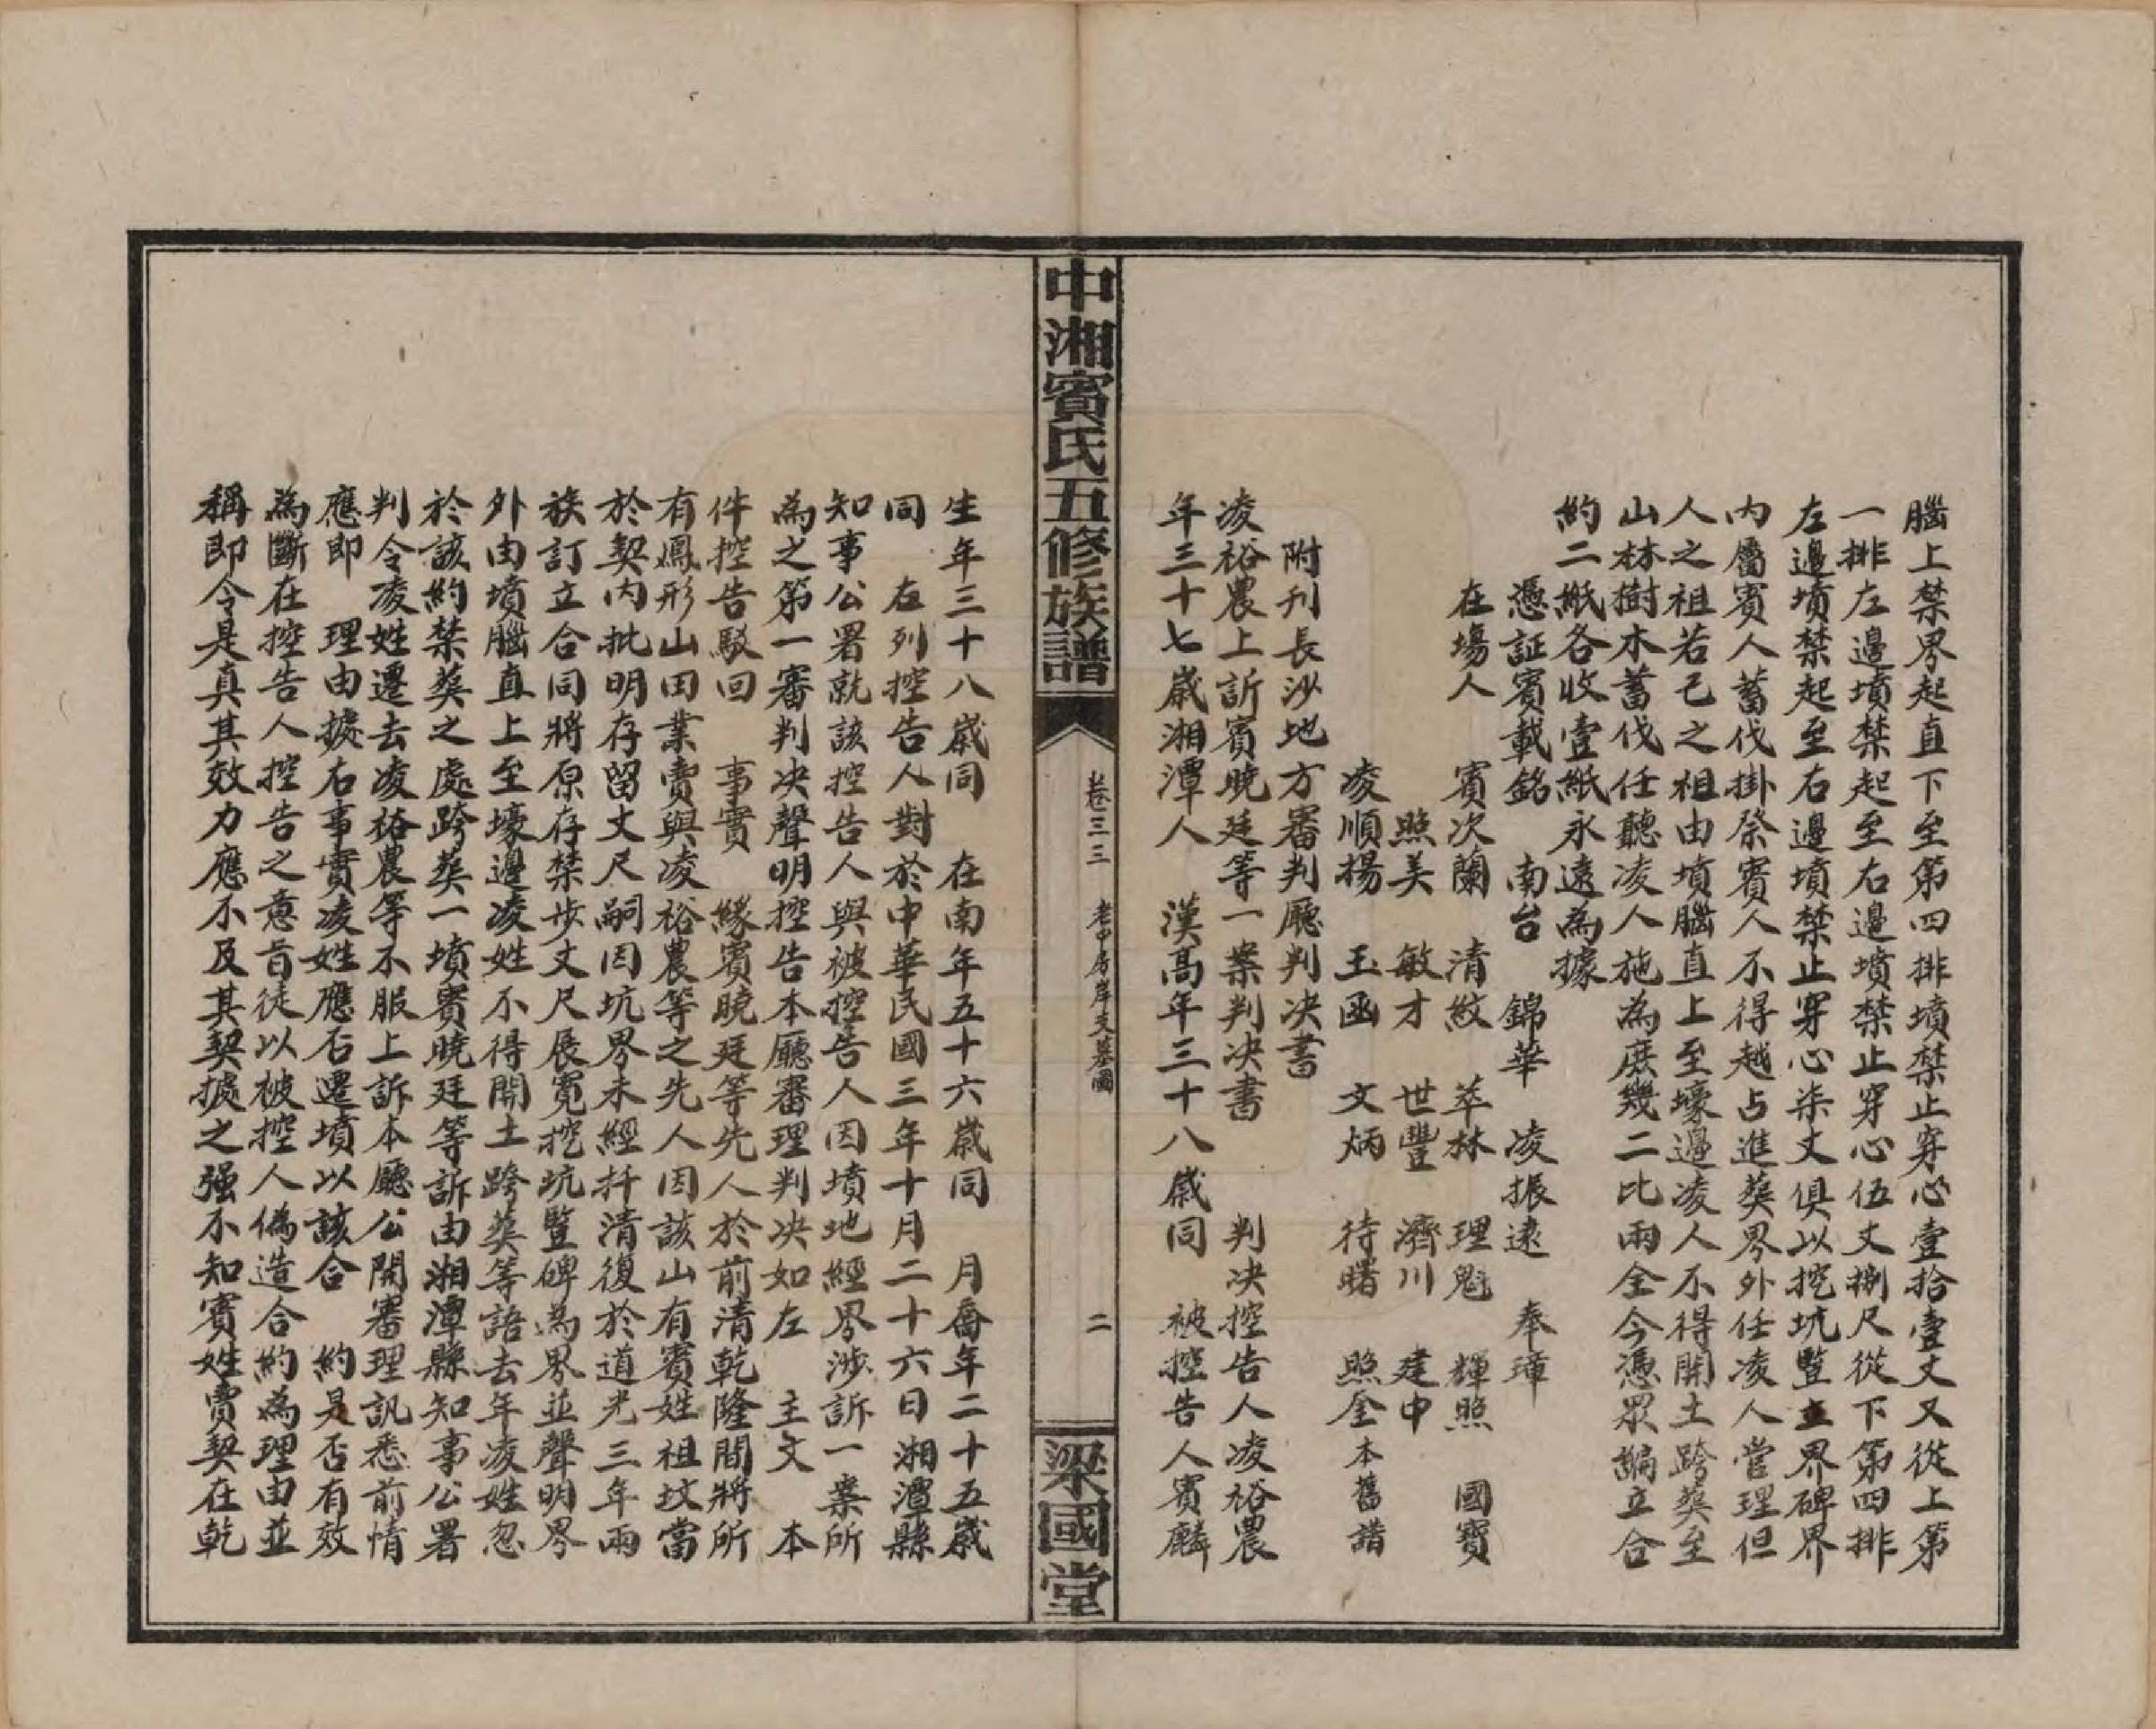 腦上禁界起直下至第四排墳禁止穿心壹拾壹丈又從上第
一排左邊墳禁起至右邊墳禁止穿心伍丈捌尺從下第四排
左邊墳禁起至右邊墳禁止穿心柒丈俱以挖坑豎立界碑界
內屬賓人蓄伐掛祭賓人不得越占進葬界外任凌人管理但
人之祖若已之祖由墳腦直上至壕邊凌人不得開土跨葬至
山林樹木蓄伐任聽凌人施為庶幾二比兩全今憑眾編立合
約二紙各收壹紙永遠為據
憑証賓載銘　南台　錦華　凌振逮　奉璋
在場人　賓次蘭　清紋　萃林　理魁　輝照　國寶
照美　敏才　世豐　濟川　建中
凌順揚　玉函　文炳　待曙　照奎本舊譜
附刊長沙地方審判廳判決書
凌裕農上訴賓曉廷等一案判决書　判决控告人凌裕農
年三十七歲湘潭人　漢高年三十八歲同　被控告人賓麟
中湘賓氏五修族譜
卷三三　老中房岸支墓圖　二
梁國堂
生年三十八歲同　在南年五十六歲同　月喬年二十五歲
同　右列控告人對於中華民國三年十月二十六日湘潭縣
知事公署就該控告人與被控告人因墳地經界涉訴一案所
為之第一審判决聲明控告本廳審理判决如左　主文　本
件控告駁回　事實　緣賓曉廷等先人於前清乾隆間將所
有鳳形山田業賣與凌裕農等之先人因該山有賓姓祖坟當
於契内批明存留丈尺嗣因坑界未經扦清復於道光三年兩
族訂立合同將原存禁步丈尺展寬挖坑豎碑為界並聲明界
外由墳腦直上至壕邊凌姓不得開土跨葬等語去年凌姓忽
於該約禁葬之處跨葬一墳賓曉廷等訴由湘潭縣知事公署
判令凌姓遷去凌裕農等不服上訴本廳公開審理訊悉前情
應即　理由據右事實凌姓應否遷墳以該合　約是否有效
為斷在控告人控告之意旨徒以被控人偽造合約為理由並
稱即令是真其效力應不及其契據之强不知賓姓賣契在乾